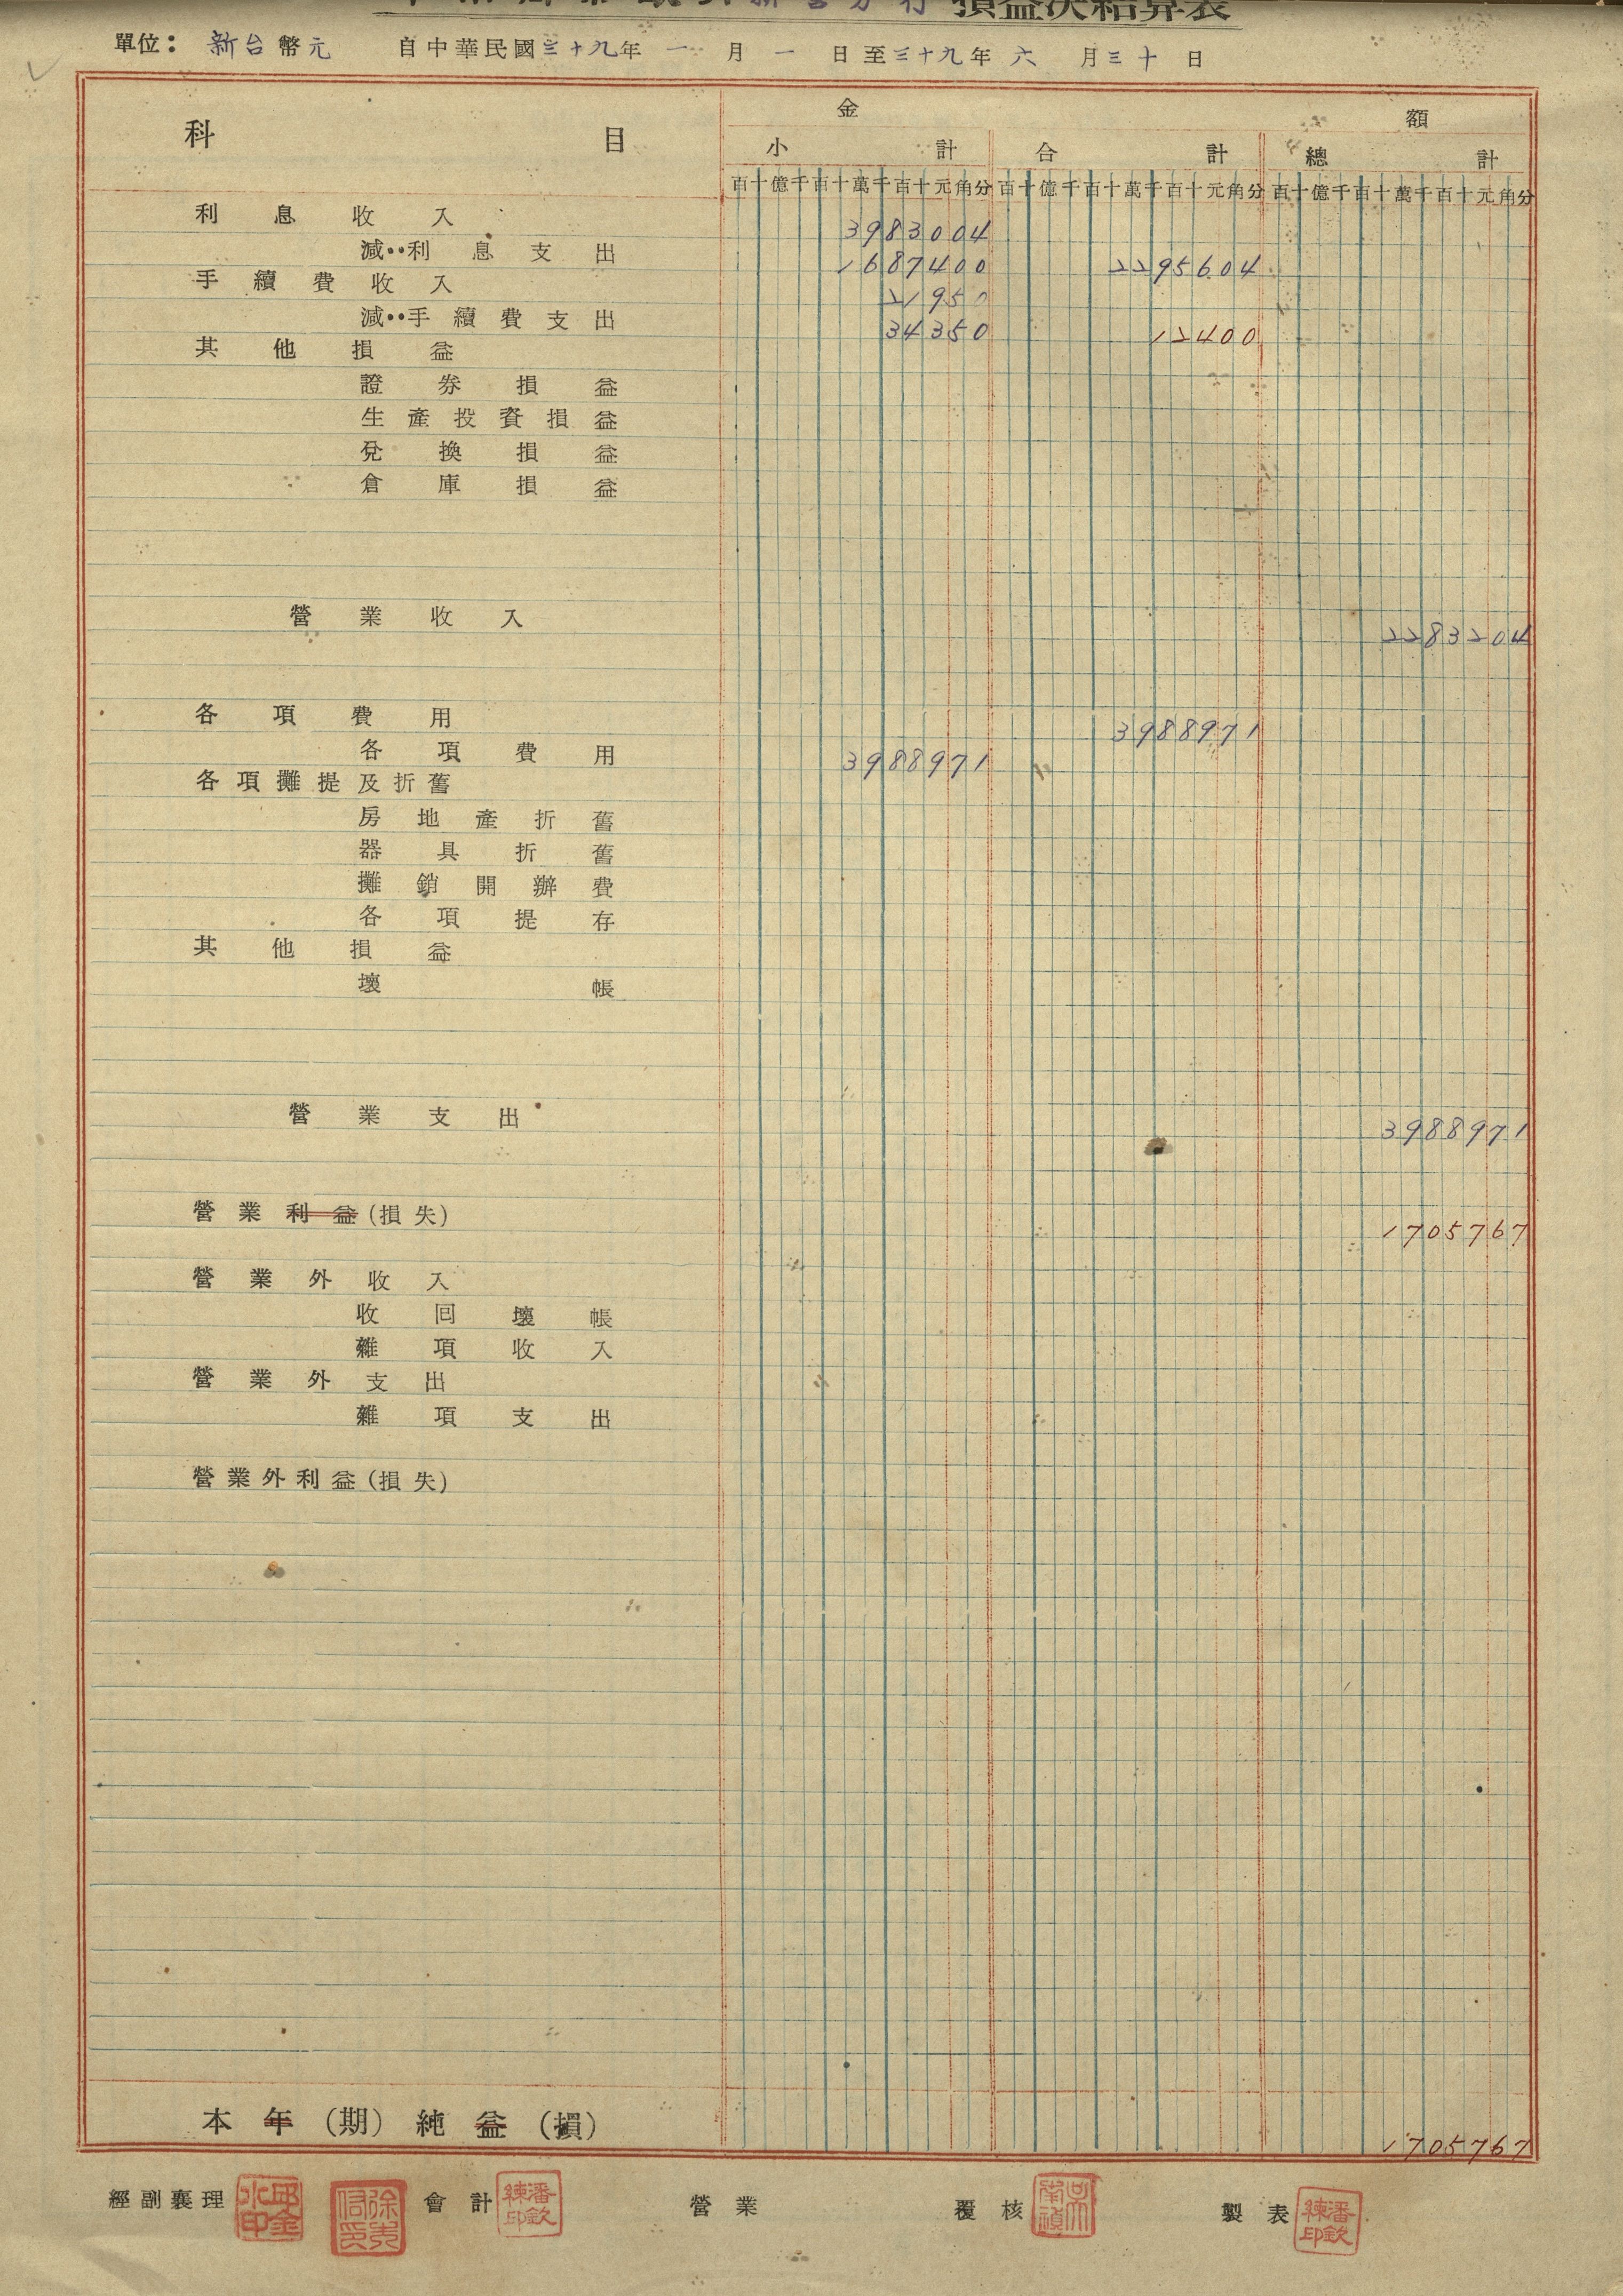 新營分行 損益決結算表
單位： 新台幣元 自中華民國三十九年 一 月 一 日至三十九年 六 月三十 日
科 目 金 額
小 計 合 計 總 計
百十億千百十萬千百十元角分 百十億千百十萬千百十元角分 百十億千百十萬千百十元角分
利息收入 3983004
減：利息支出 1687400 2295604
手續費收入 21950
減：手續費支出 34350 12400
其他損益
證券損益
生產投資損益
兌換損益
倉庫損益
營業收入 2283204
各項費用 3988971
各項費用 3988971
各項攤提及折舊
房地產折舊
器具折舊
攤銷開辦費
各項提存
其他損益
壞帳
營業支出 3988971
營業利益(損失) 1705767
營業外收入
收回壞帳
雜項收入
營業外支出
雜項支出
營業外利益(損失)
本年(期)純益(損) 1705767
經副襄理 邱金水印 會計 潘欽練印 營業 覆核 製表 潘欽練印